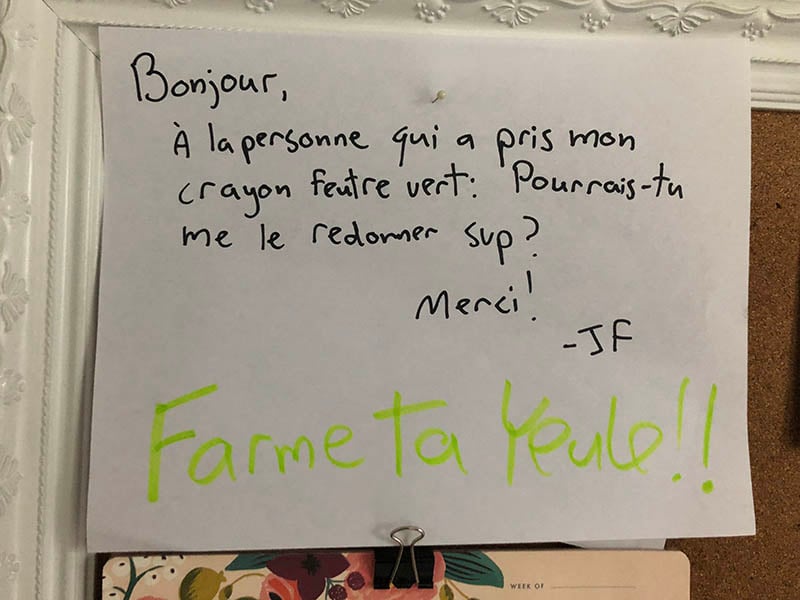 Bonjour,
À la personne qui a pris mon
crayon feutre vert: Pourrais-tu
me le redonner svp?
Merci!
-JF
Farme ta Yeule!!
WEEK OF